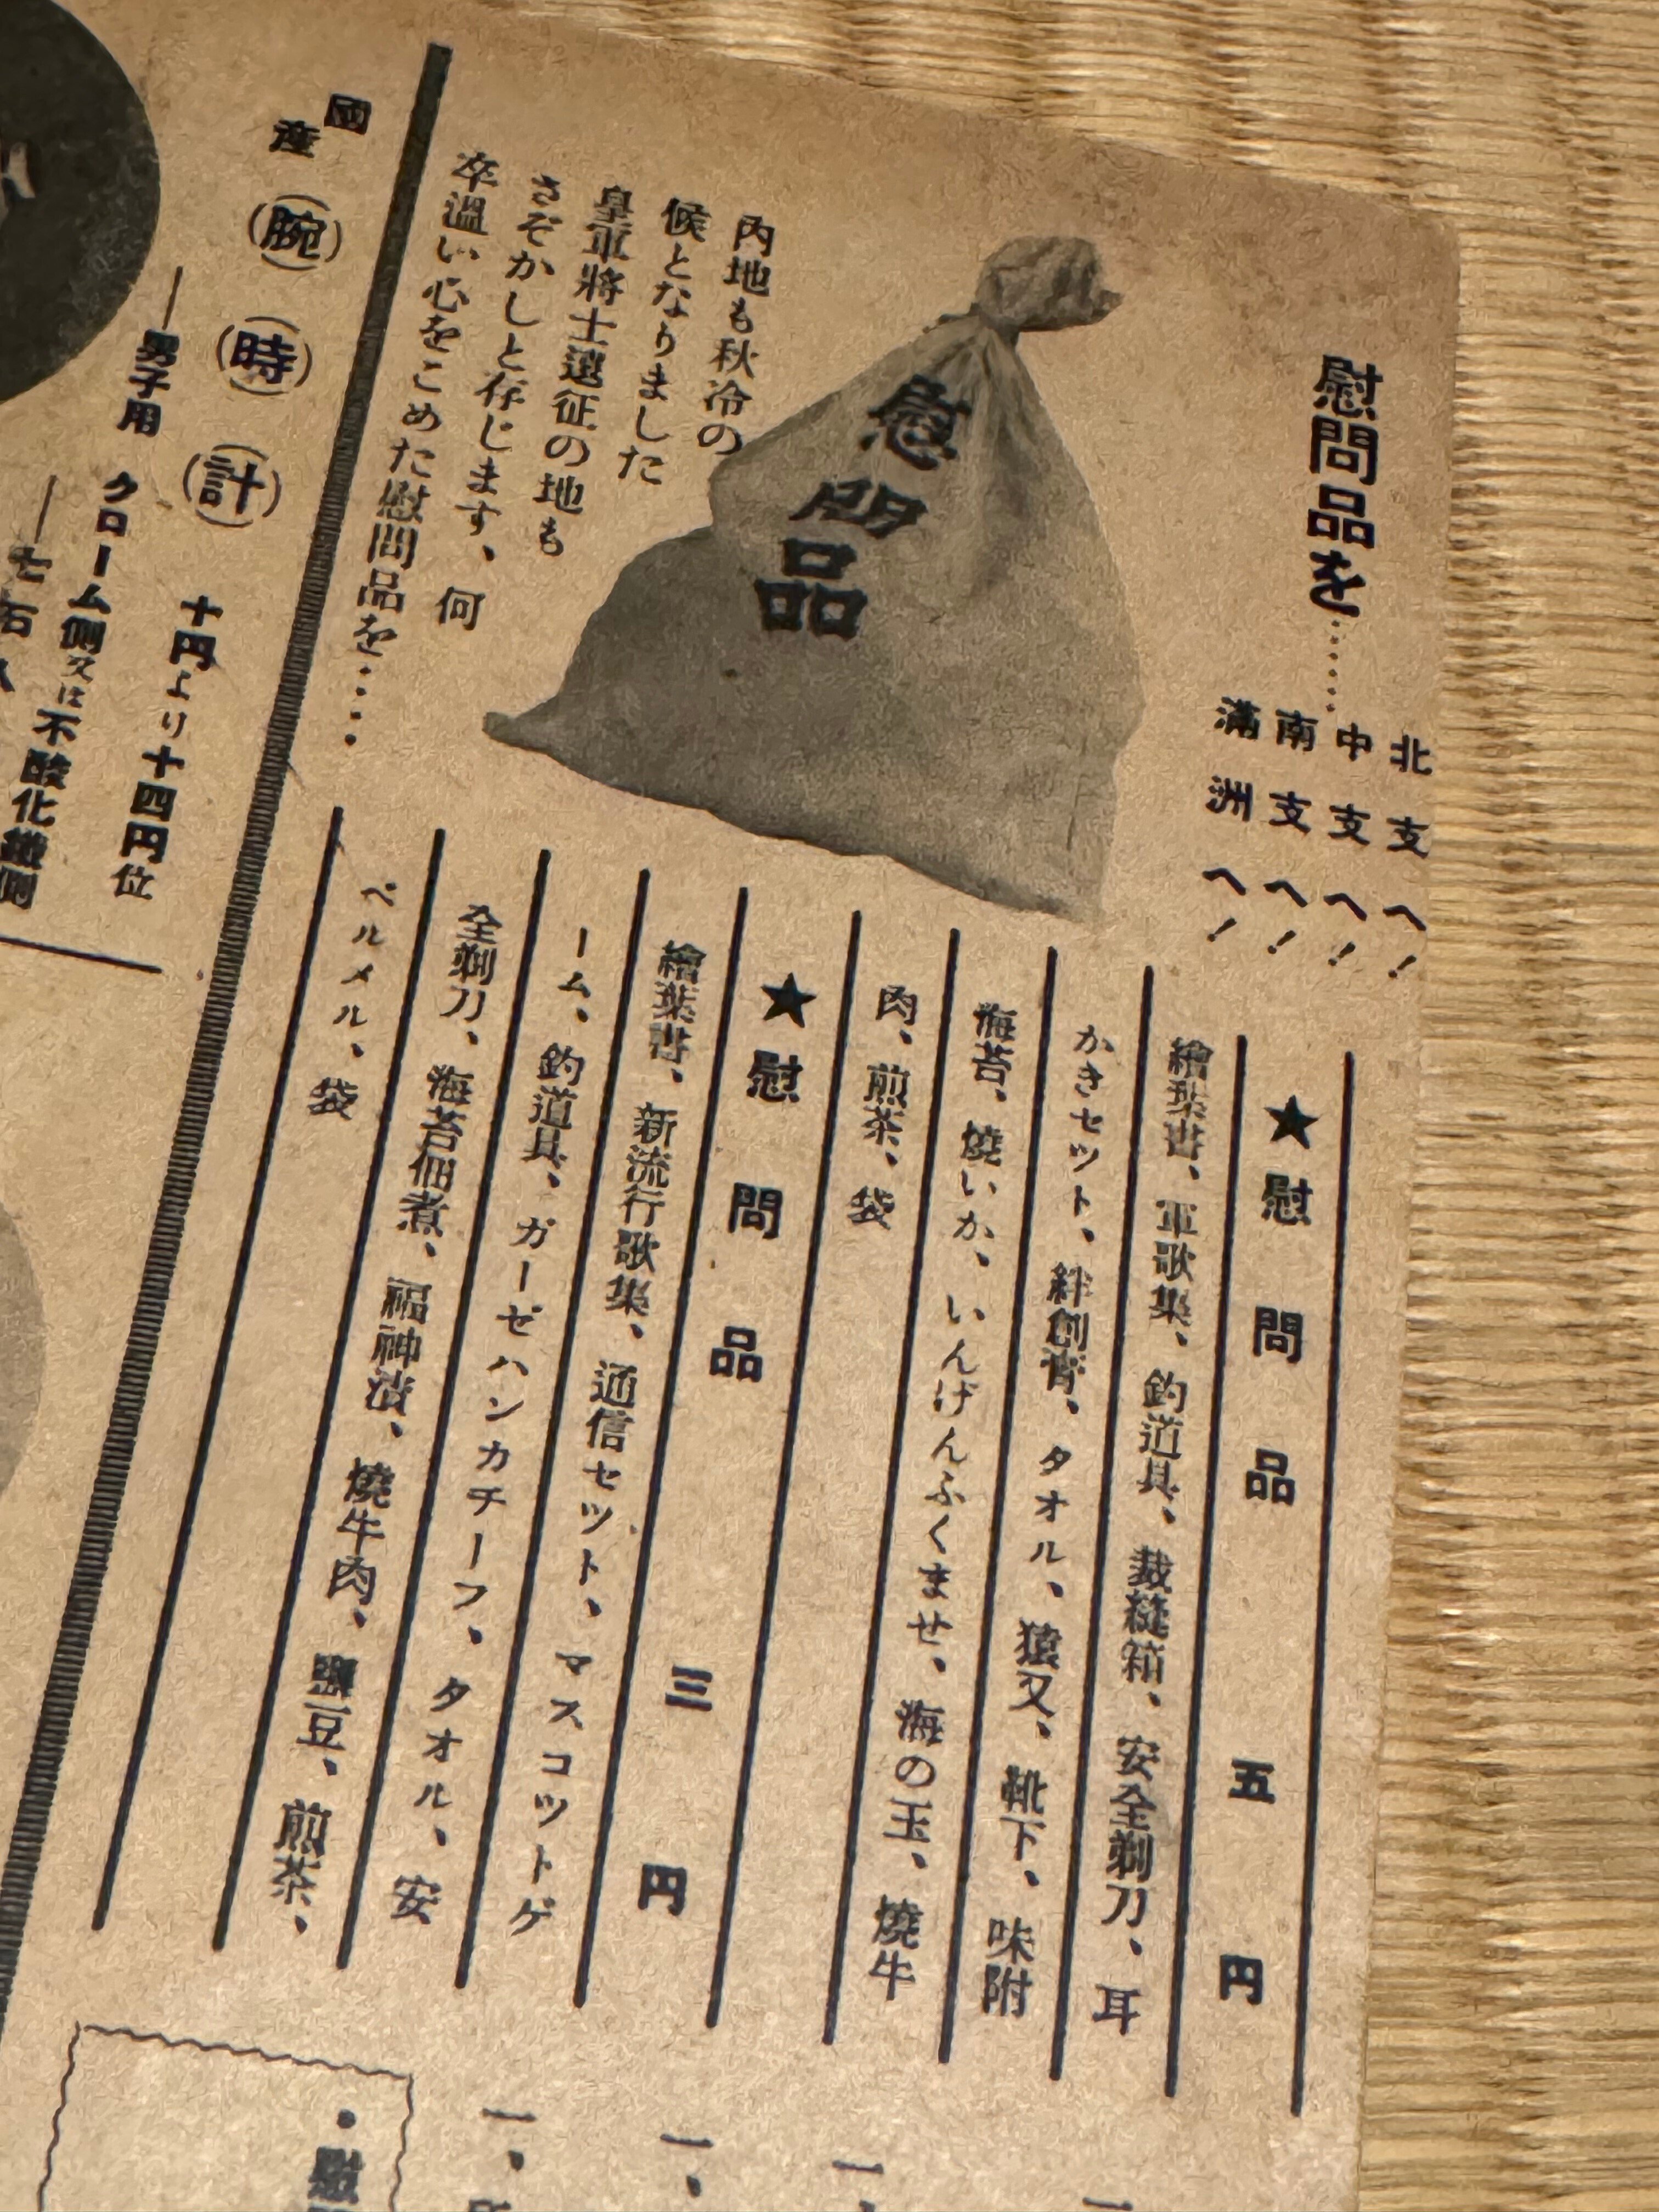 慰問品を……
北支へ！
中支へ！
南支へ！
満洲へ！
慰問品
内地も秋冷の
候となりました
皇軍將士遠征の地も
さぞかしと存じます、何
卒温い心をこめた慰問品を……
★慰問品 五円
繪葉書、軍歌集、釣道具、裁縫箱、安全剃刀、耳
かきセット、絆創膏、タオル、猿又、靴下、味附
海苔、燒いか、いんげんふくませ、海の玉、燒牛
肉、煎茶、袋
★慰問品 三円
繪葉書、新流行歌集、通信セット、マスコットゲ
ーム、釣道具、ガーゼハンカチーフ、タオル、安
全剃刀、海苔佃煮、福神漬、燒牛肉、豆、煎茶、
ベルメル、袋
國産(腕)(時)(計) 十円より十四円位
―男子用 クローム側又は不酸化鐵側
―七石
一、
一、
一、
一、
・慰